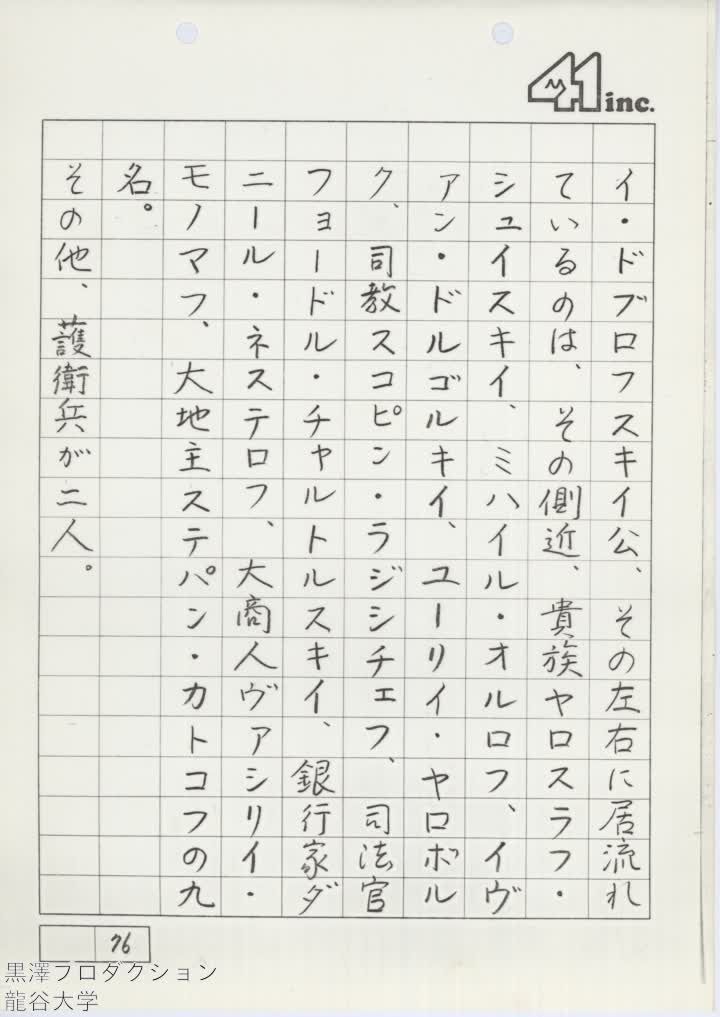 41 inc.
イ・ドブロフスキイ公、その左右に居流れ
ているのは、その側近、貴族ヤロスラフ・
シュイスキイ、ミハイル・オルロフ、イヴ
アン・ドルゴルキイ、ユーリイ・ヤロポル
ク、司教スコピン・ラジシチェフ、司法官
フョードル・チャルトルスキイ、銀行家ダ
ニール・ネステロフ、大商人ヴァシリイ・
モノマフ、大地主ステパン・カトコフの九
名。
その他、護衛兵が二人。
76
黒澤プロダクション
龍谷大学